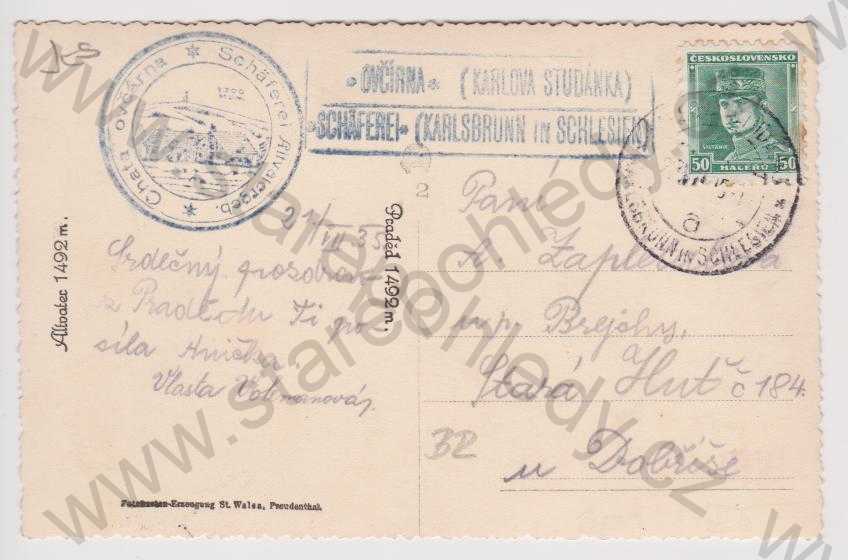 * Chata ovčárna * Schäferei Altvatergeb.
OVČÍRNA * (KARLOVA STUDÁNKA)
SCHÄFEREI * (KARLSBRUNN IN SCHLESIEN)
ČESKOSLOVENSKO
50 HALÉŘŮ 50
KARLSBRUNN IN SCHLESIEN *
a
2
Altvater 1492 m.
Praděd 1492 m.
VII 35
Srdečný pozdrav
z Pradědu Ti po-
síla Anička.
Vlasta
Paní
A.
Brejchy
Stará Huť č 184.
u Dobříše
Erzeugung St. Walsa, Freudenthal.
www.starepohledy.cz